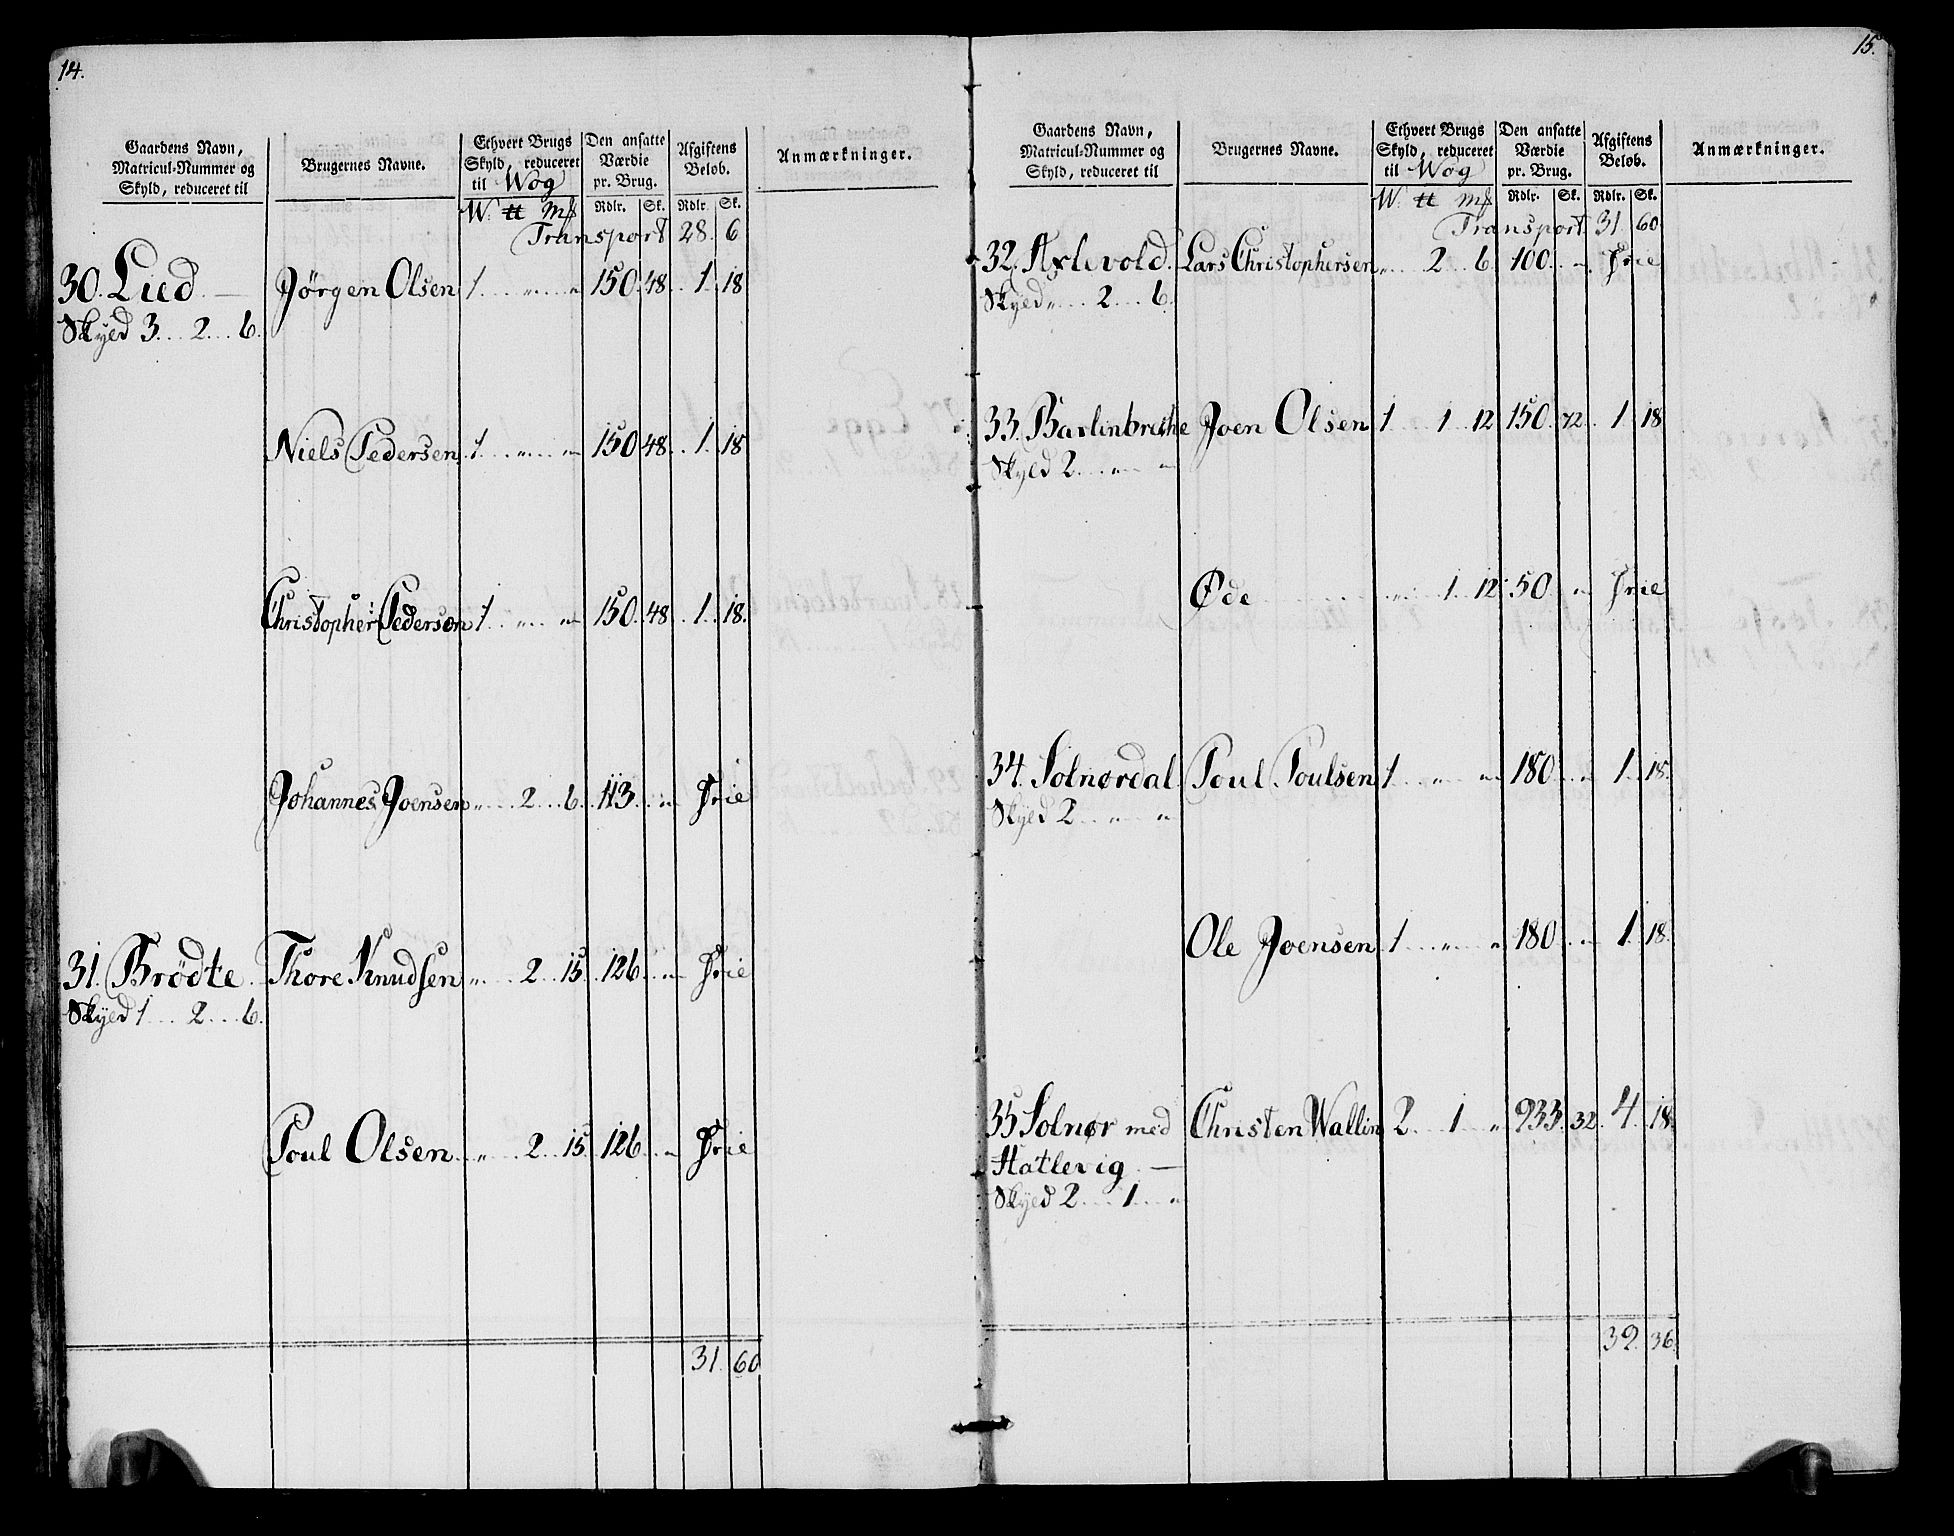 14.
Gaardens Navn, Matricul-Nummer og Skyld, reduceret til
Brugernes Navne.
Ethvert Brugs Skyld, reduceret til Wog
Den ansatte Værdie pr. Brug.
Afgiftens Beløb.
Anmærkninger.
W. ℔ Mk Rdlr. Sk. Rdlr. Sk.
Transport 28. 6
30. Lied Jørgen Olsen 1 „ „ 150 48 1 18
Skyld 3 2 6.
Niels Pedersen 1 „ „ 150 48 1 18
Christopher Pedersen 1 „ „ 150 48 1 18.
Johannes Joensen „ 2 6 113 „ Frie
31. Brödte Thore Knudsen „ 2 15 126 „ Frie
Skyld 1 2 6.
Poul Olsen „ 2 15 126 „ Frie
31. 60
15.
Gaardens Navn, Matricul-Nummer og Skyld, reduceret til
Brugernes Navne.
Ethvert Brugs Skyld, reduceret til Wog
Den ansatte Værdie pr. Brug.
Afgiftens Beløb.
Anmærkninger.
W. ℔ Mk Rdlr. Sk. Rdlr. Sk.
Transport 31. 60
32. Axlevold Lars Christophersen „ 2 6 100 „ Frie
Skyld „ 2 6.
33. Barlinbrække Joen Olsen 1 1 12 150 72 1 18
Skyld 2 „ „
Øde „ 1 12 50 „ Frie
34. Solnørdal Poul Poulsen 1 „ „ 180 „ 1 18.
Skyld 2 „ „
Ole Joensen 1 „ „ 180 „ 1 18.
35 Solnør med Christen Wallin 2 1 „ 933 32 4 18.
Hatlevig
Skyld 2 1 „
39. 36.